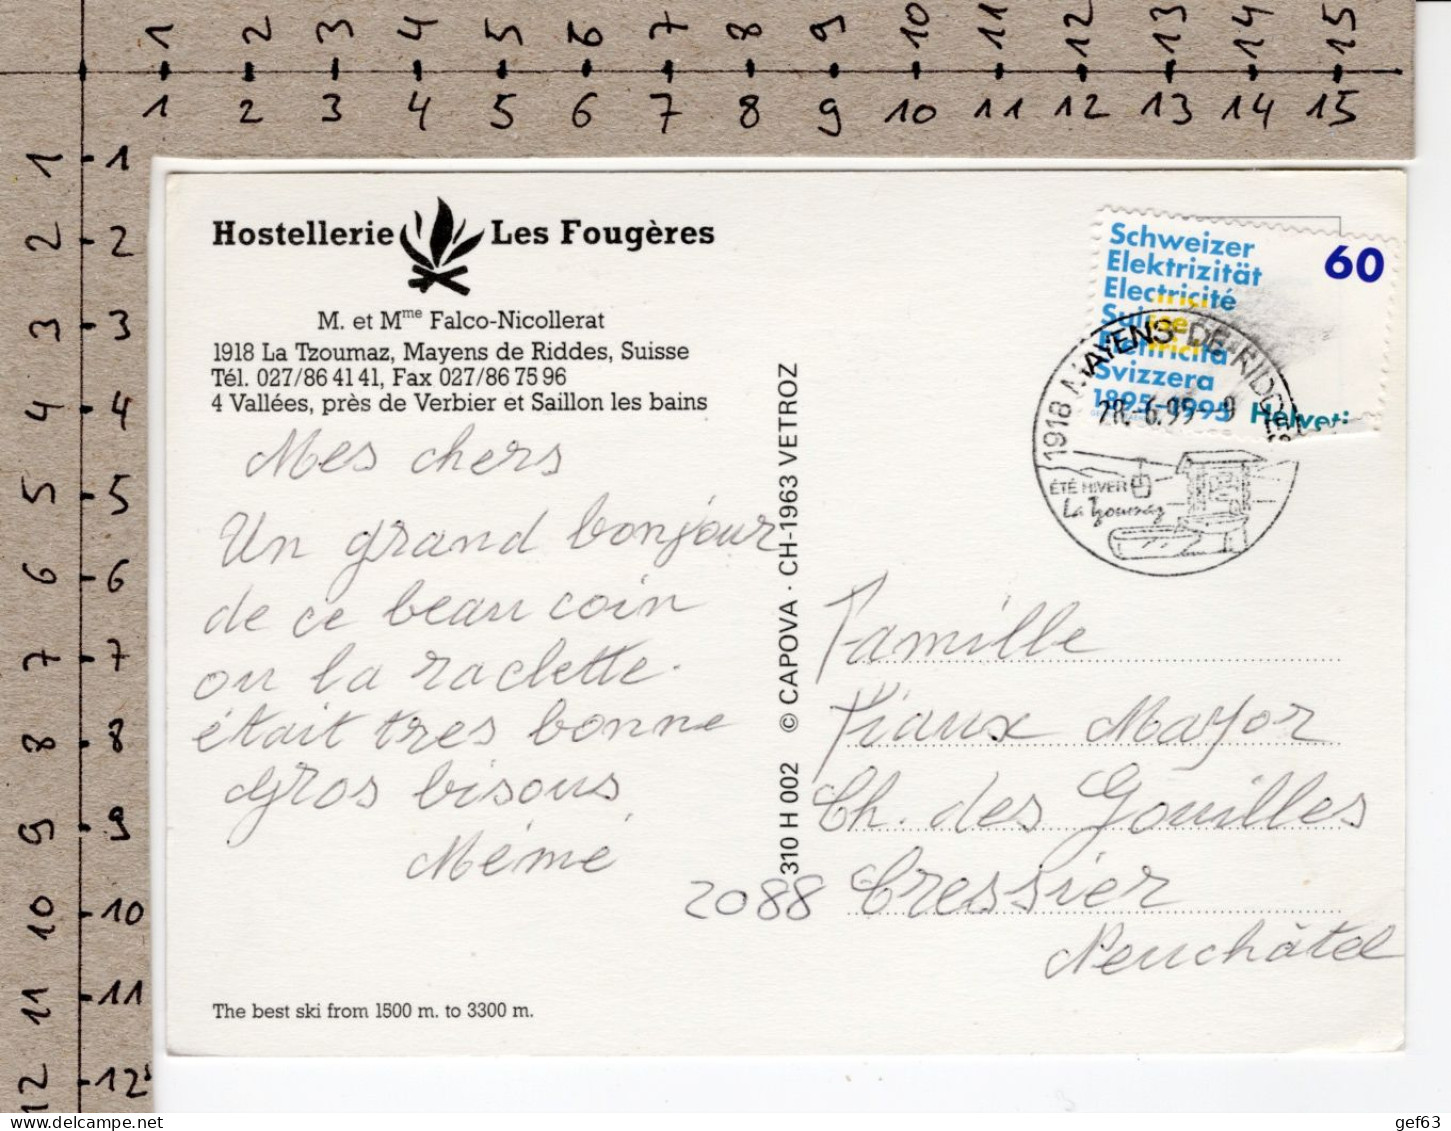 1 2 3 4 5 6 7 8 9 10 11 12 13 14 15
1 2 3 4 5 6 7 8 9 10 11 12 13 14 15
1 1
2 2
3 3
4 4
5 5
6 6
7 7
8 8
9 9
10 10
11 11
12 12
Hostellerie Les Fougères
M. et Mme Falco-Nicollerat
1918 La Tzoumaz, Mayens de Riddes, Suisse
Tél. 027/86 41 41, Fax 027/86 75 96
4 Vallées, près de Verbier et Saillon les bains
Mes chers
Un grand bonjour
de ce beau coin
ou la raclette
était tres bonne
Gros bisous
Mémé
The best ski from 1500 m. to 3300 m.
310 H 002 © CAPOVA · CH-1963 VETROZ
Schweizer
Elektrizität
Electricité
Suisse
Elettricità
Svizzera
1895-1995
60
Helveti
1918 MAYENS-DE-RIDDES
28.-6.99-9
ÉTÉ HIVER
La Tzoumaz
Famille
Viaux Mayor
Ch. des Gouilles
2088 Cressier
Neuchâtel
gef63